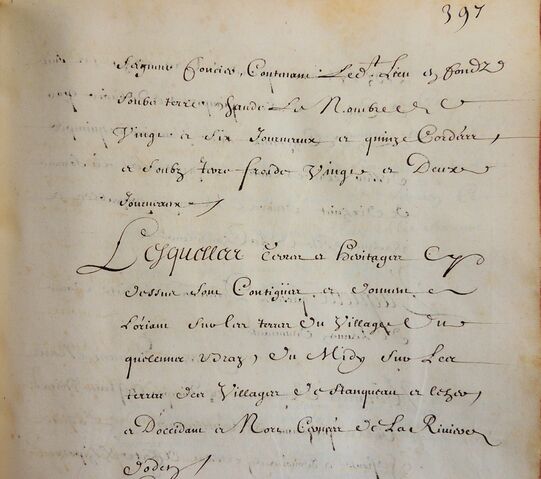 397
foncier, Contenant Ledt Lieu en fondz
soubz terre chaude Le Nombre de
Vingt et Six Journeaux et quinze Cordes
et soubz terre froide Vingt et Deux
Journeaux
Lesquelles terres et heritages cy
dessus sont Contigues et donnent
Lorient sur les terres du Village du
quelennec Vraz, du Midy sur Les
terres des Villages de Stanqueau et
et Doccidant et Nort de La Riviere
dodet